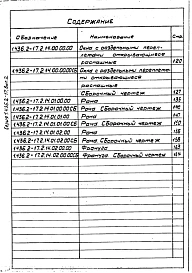 СОДЕРЖАНИЕ
Обозначение Наименование Стр.
1.436.2-17.2.14.00.00.00 Окна с раздельными переплетами открывающиеся
распашные 120
1.436.2-17.2.14.00.00.00СБ Окна с раздельными переплетами
открывающиеся
распашные
Сборочный чертеж 127
1.436.2-17.2.14.01.00.00 Рама 135
1.436.2-17.2.14.01.00.00СБ Рама Сборочный чертеж
1.436.2-17.2.14.01.01.00 Рама
1.436.2-17.2.14.01.01.00СБ Рама Сборочный чертеж
1.436.2-17.2.14.01.02.00 Рама
1.436.2-17.2.14.01.02.00СБ Рама Сборочный чертеж
1.436.2-17.2.14.02.00.00 Фрамуга
1.436.2-17.2.14.02.00.00СБ Фрамуга Сборочный чертеж